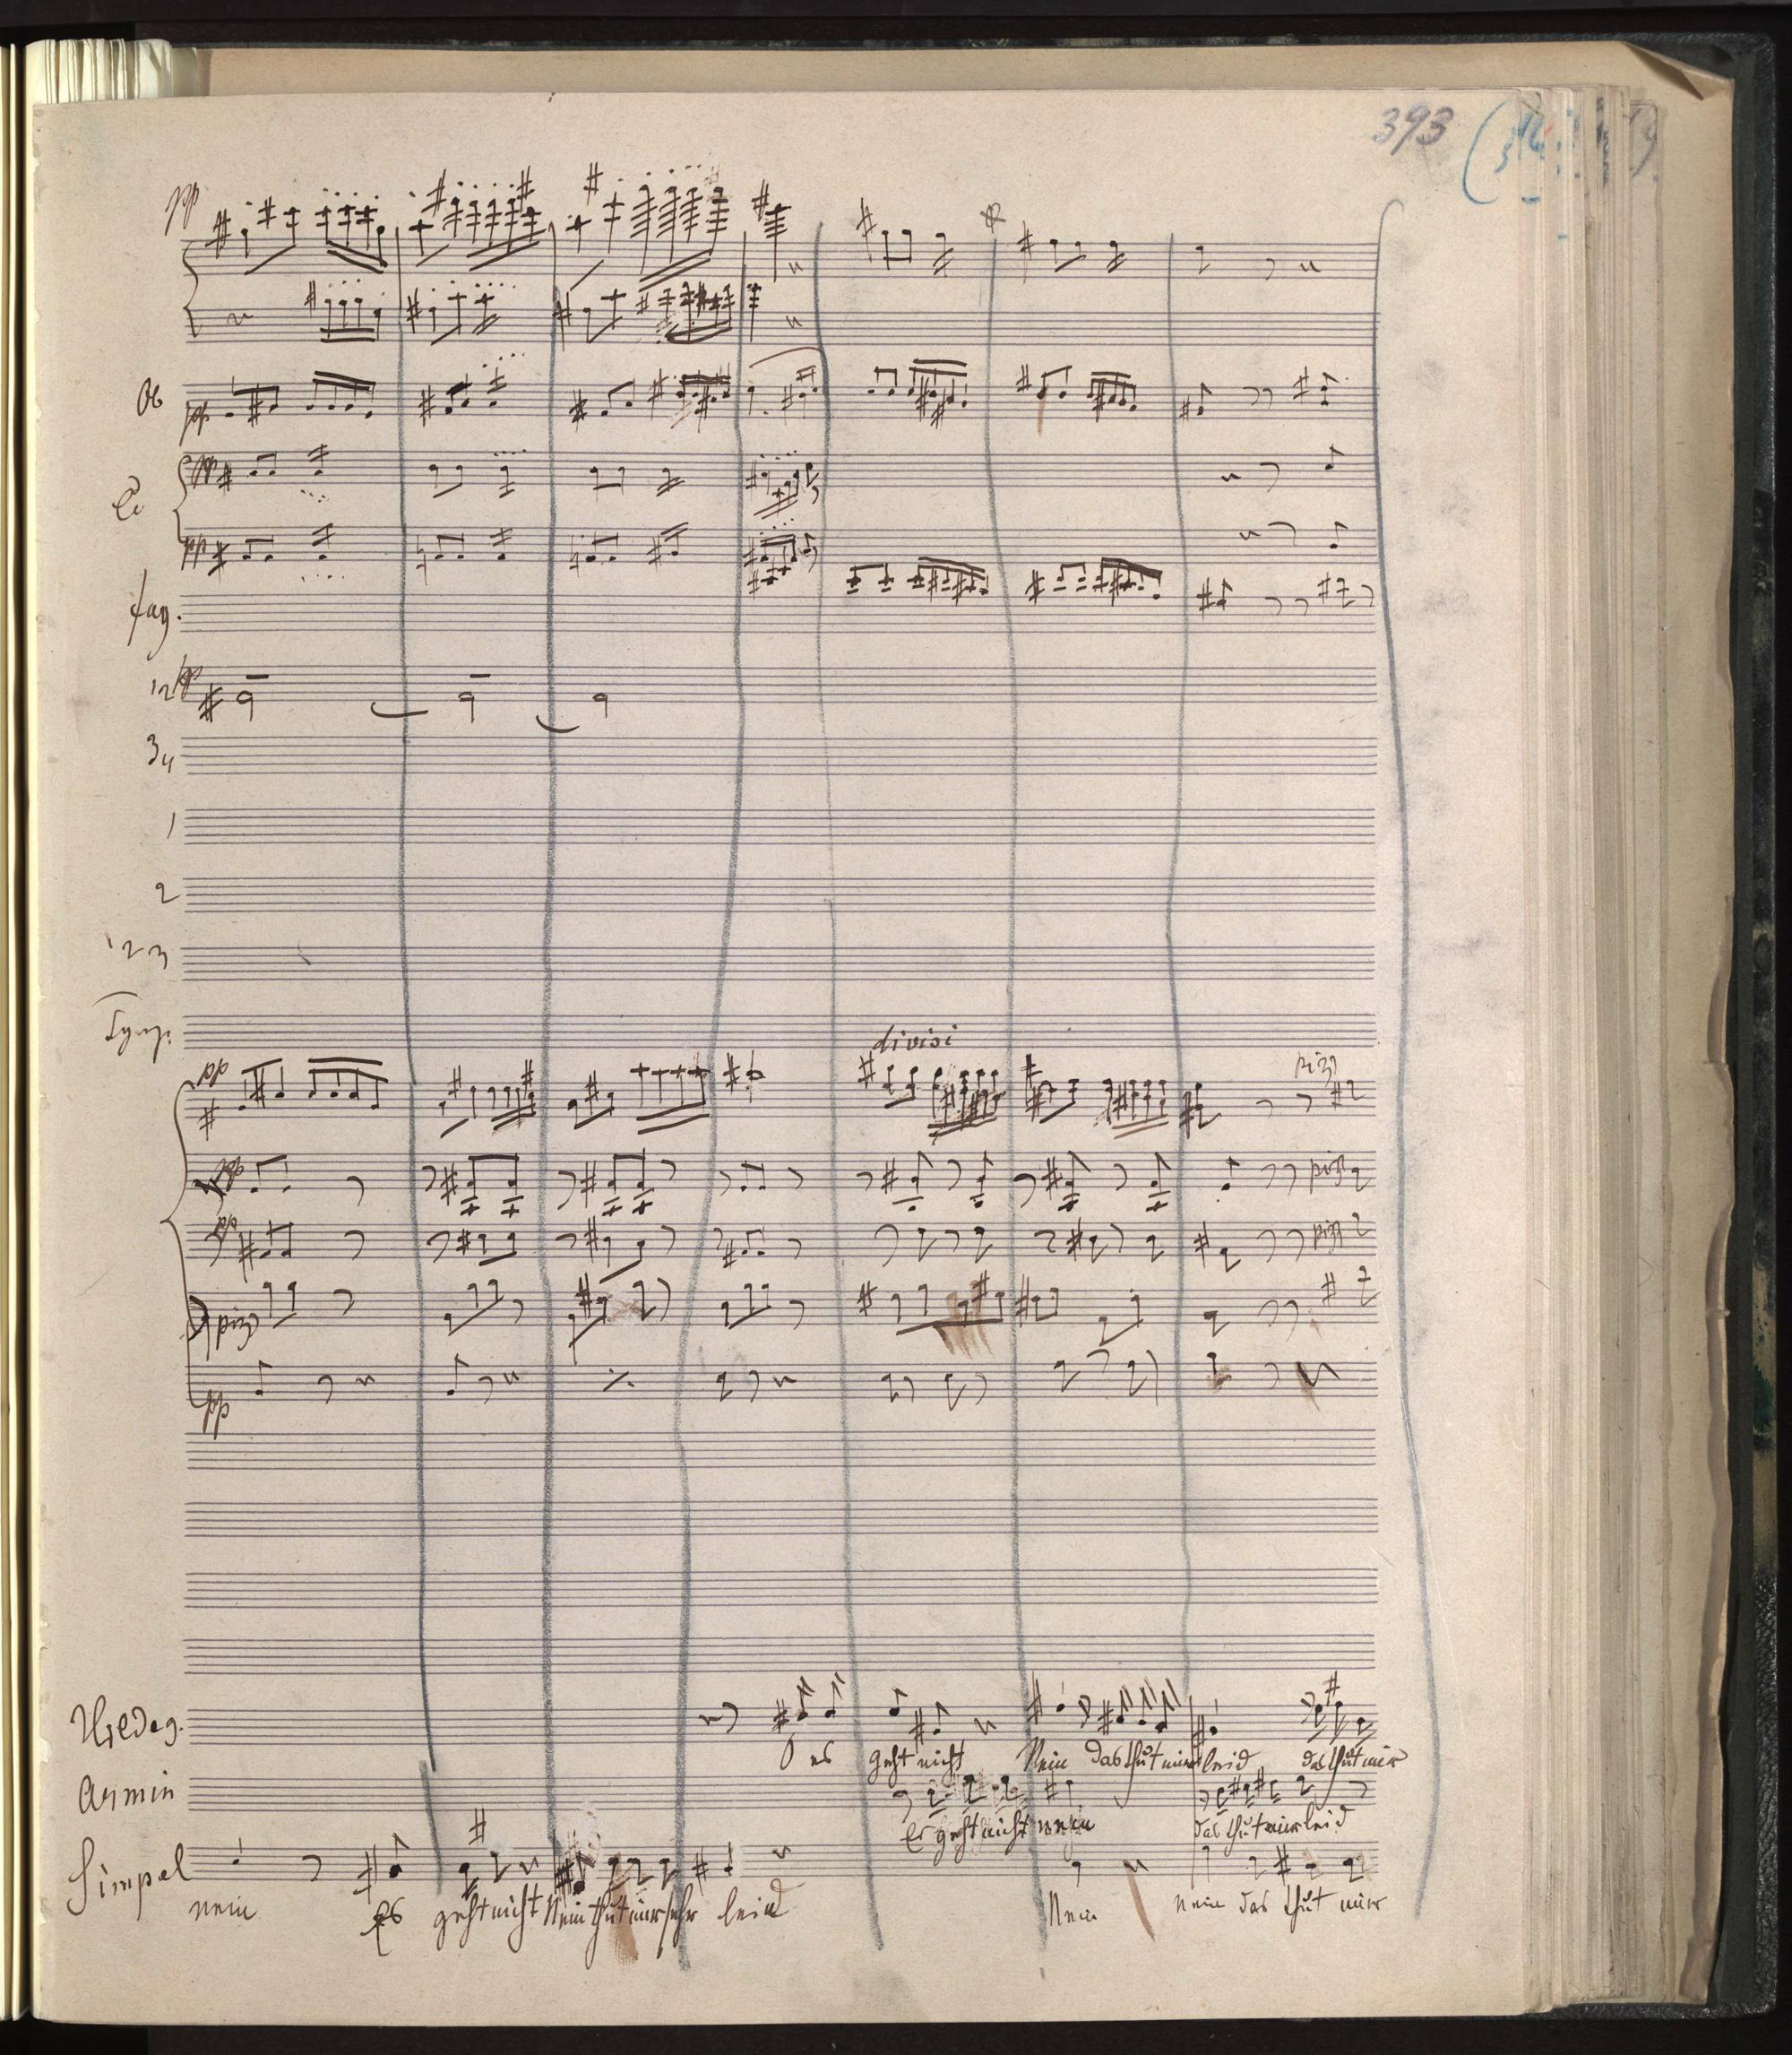 393
pp
Ob
pp
pp
Cl
pp
fag.
12 pp
3 4
1
2
1 2 3
Tymp.
divisi
pp
pizz
pp
pizz
pp
pizz
pizz
pp
Hildeg.
O es geht nicht Nein das thut mir leid das thut mir
Armin
Es geht nicht nein das thut mir leid
Simpel
nein Es geht nicht Nein thut mir sehr leid Nein nein das thut mir